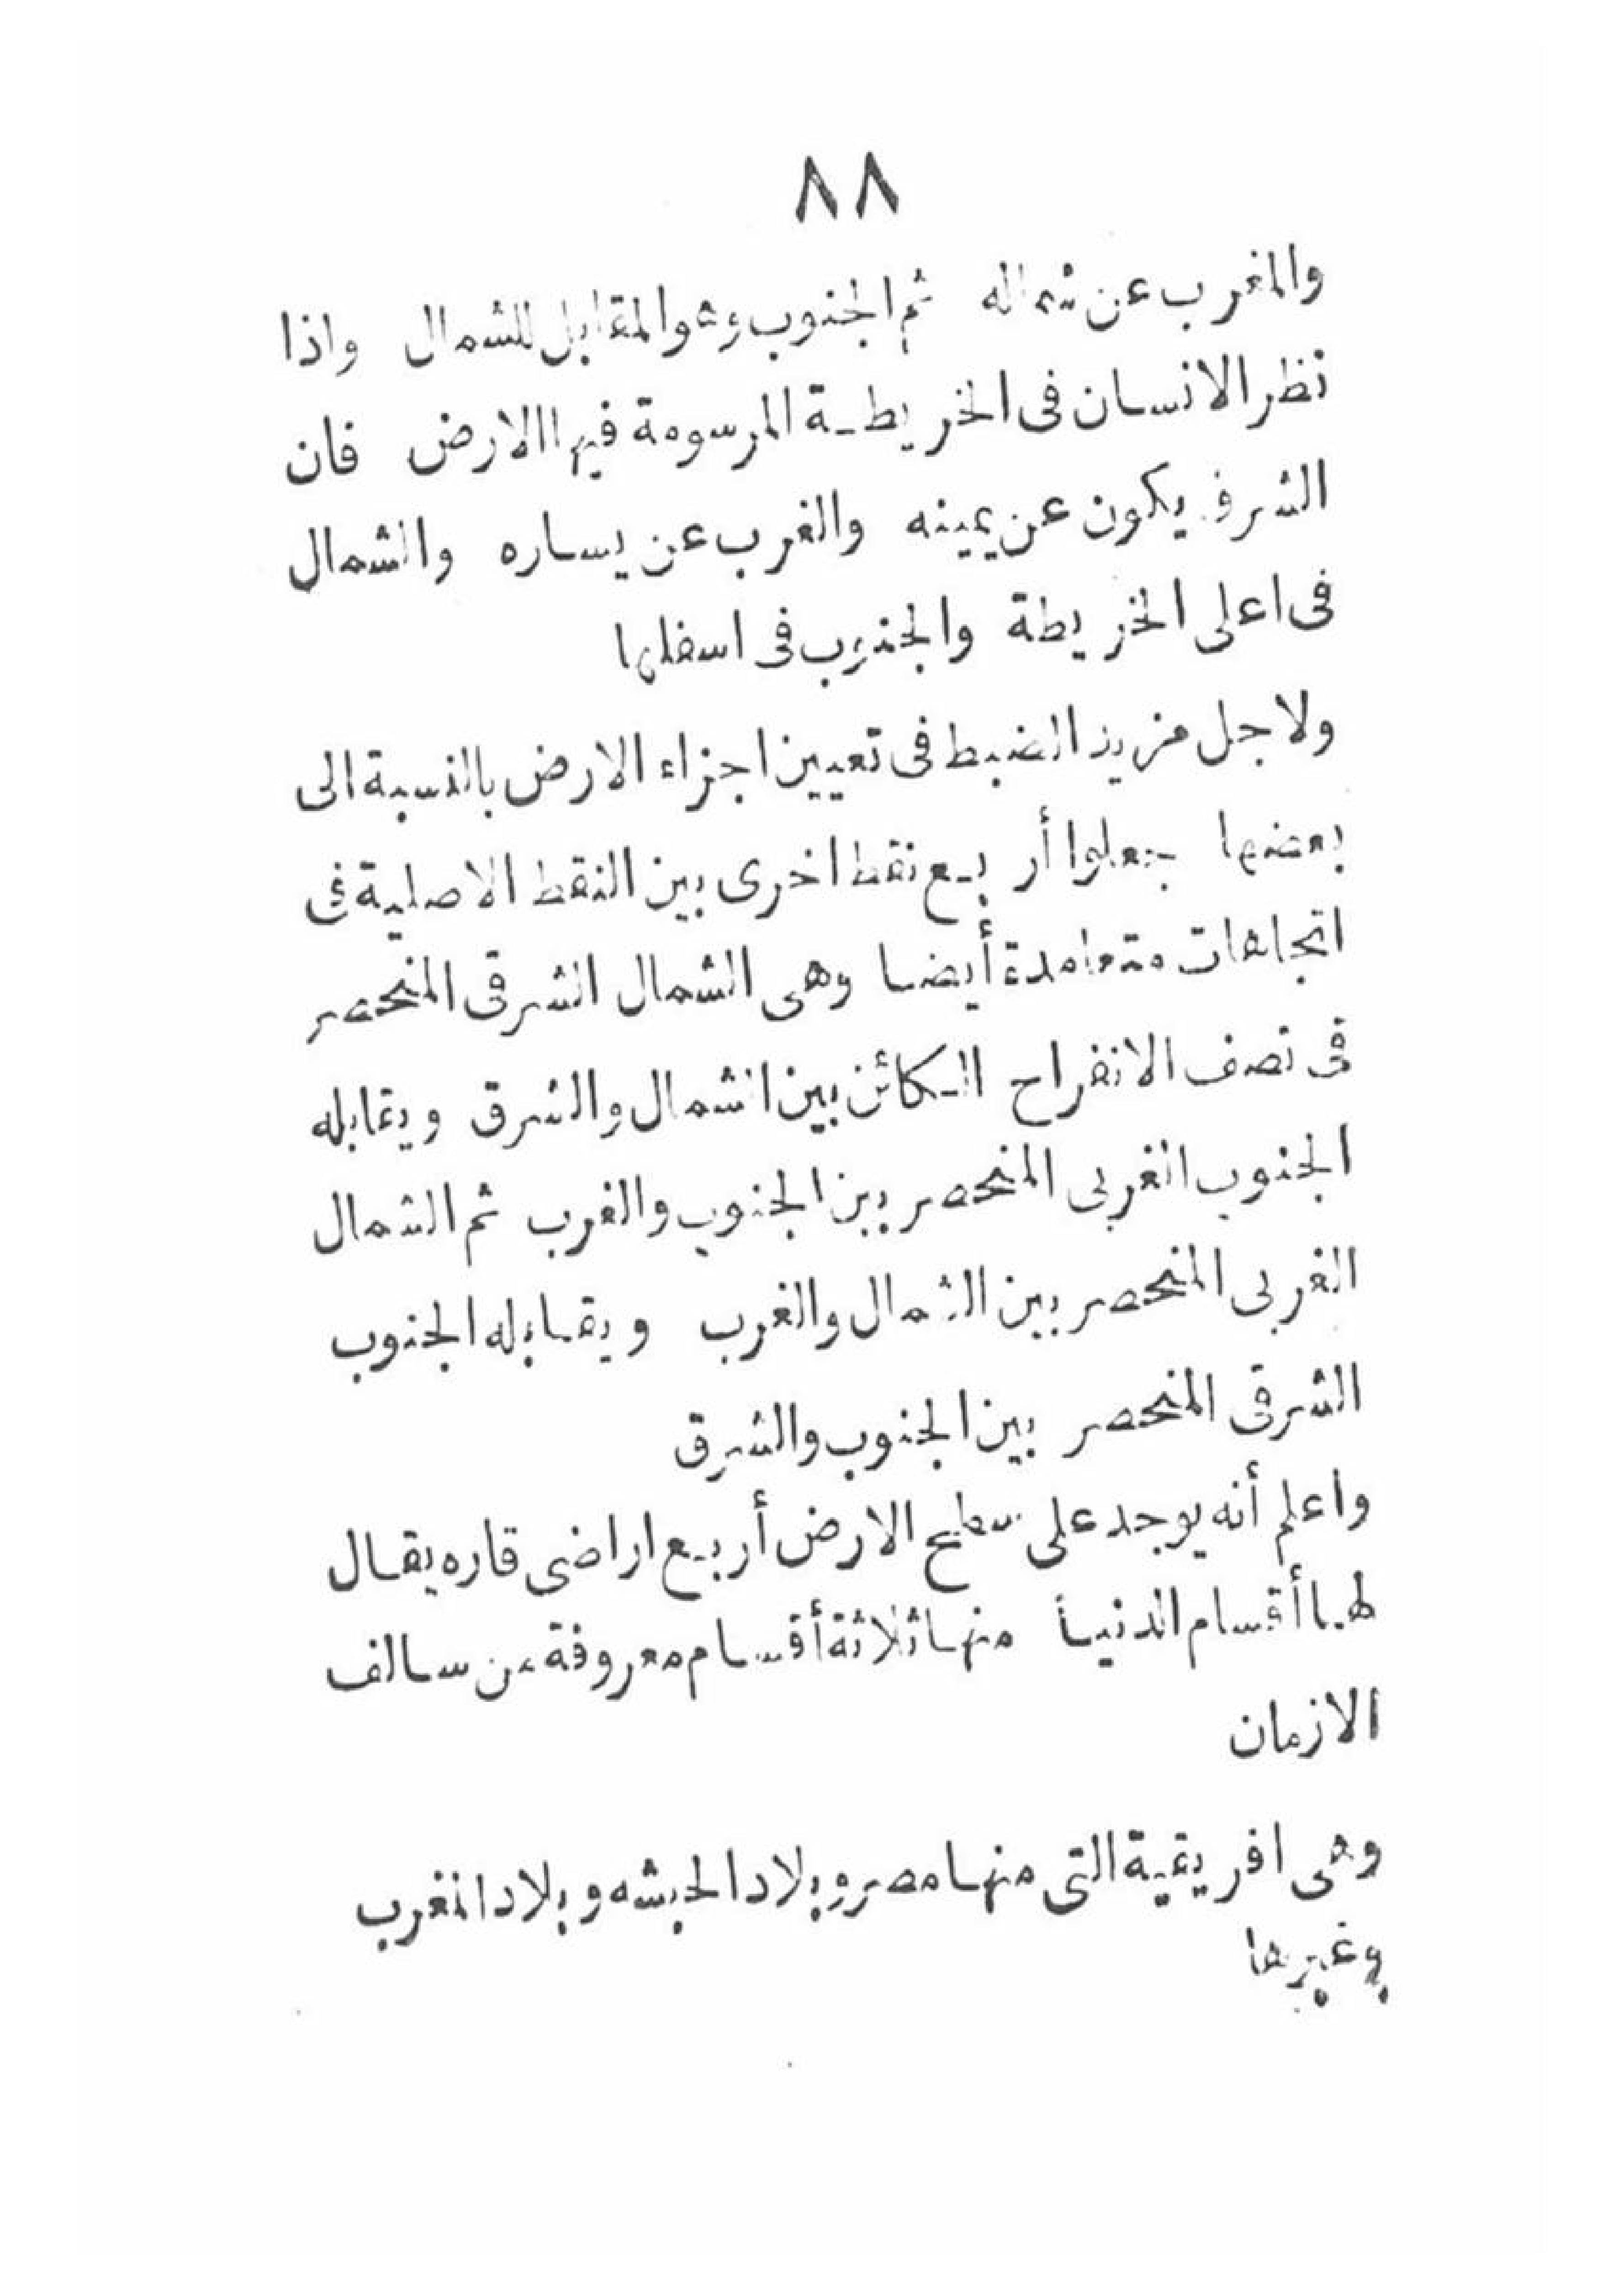 ٨٨
والمغرب عن شماله ثم الجنوب وهو المقابل للشمال واذا
نظر الانسان فى الخريطة المرسومة فيها الارض فان
الشرق يكون عن يمينه والغرب عن يساره والشمال
فى اعلى الخريطة والجنوب فى اسفلها
ولاجل مزيد الضبط فى تعيين اجزاء الارض بالنسبة الى
بعضها جعلوا أربع نقط اخرى بين النقط الاصلية فى
اتجاهات متعامدة أيضا وهى الشمال الشرقى المنحصر
فى نصف الانفراح الكائن بين الشمال والشرق ويقابله
الجنوب الغربى المنحصر بين الجنوب والغرب ثم الشمال
الغربى المنحصر بين الشمال والغرب ويقابله الجنوب
الشرقى المنحصر بين الجنوب والشرق
واعلم أنه يوجد على سطح الارض أربع اراضى قاره يقال
لها أقسام الدنيا منها ثلاثة أقسام معروفة من سالف
الازمان
وهى افريقية التى منها مصر وبلاد الحبشه وبلاد المغرب
وغيرها